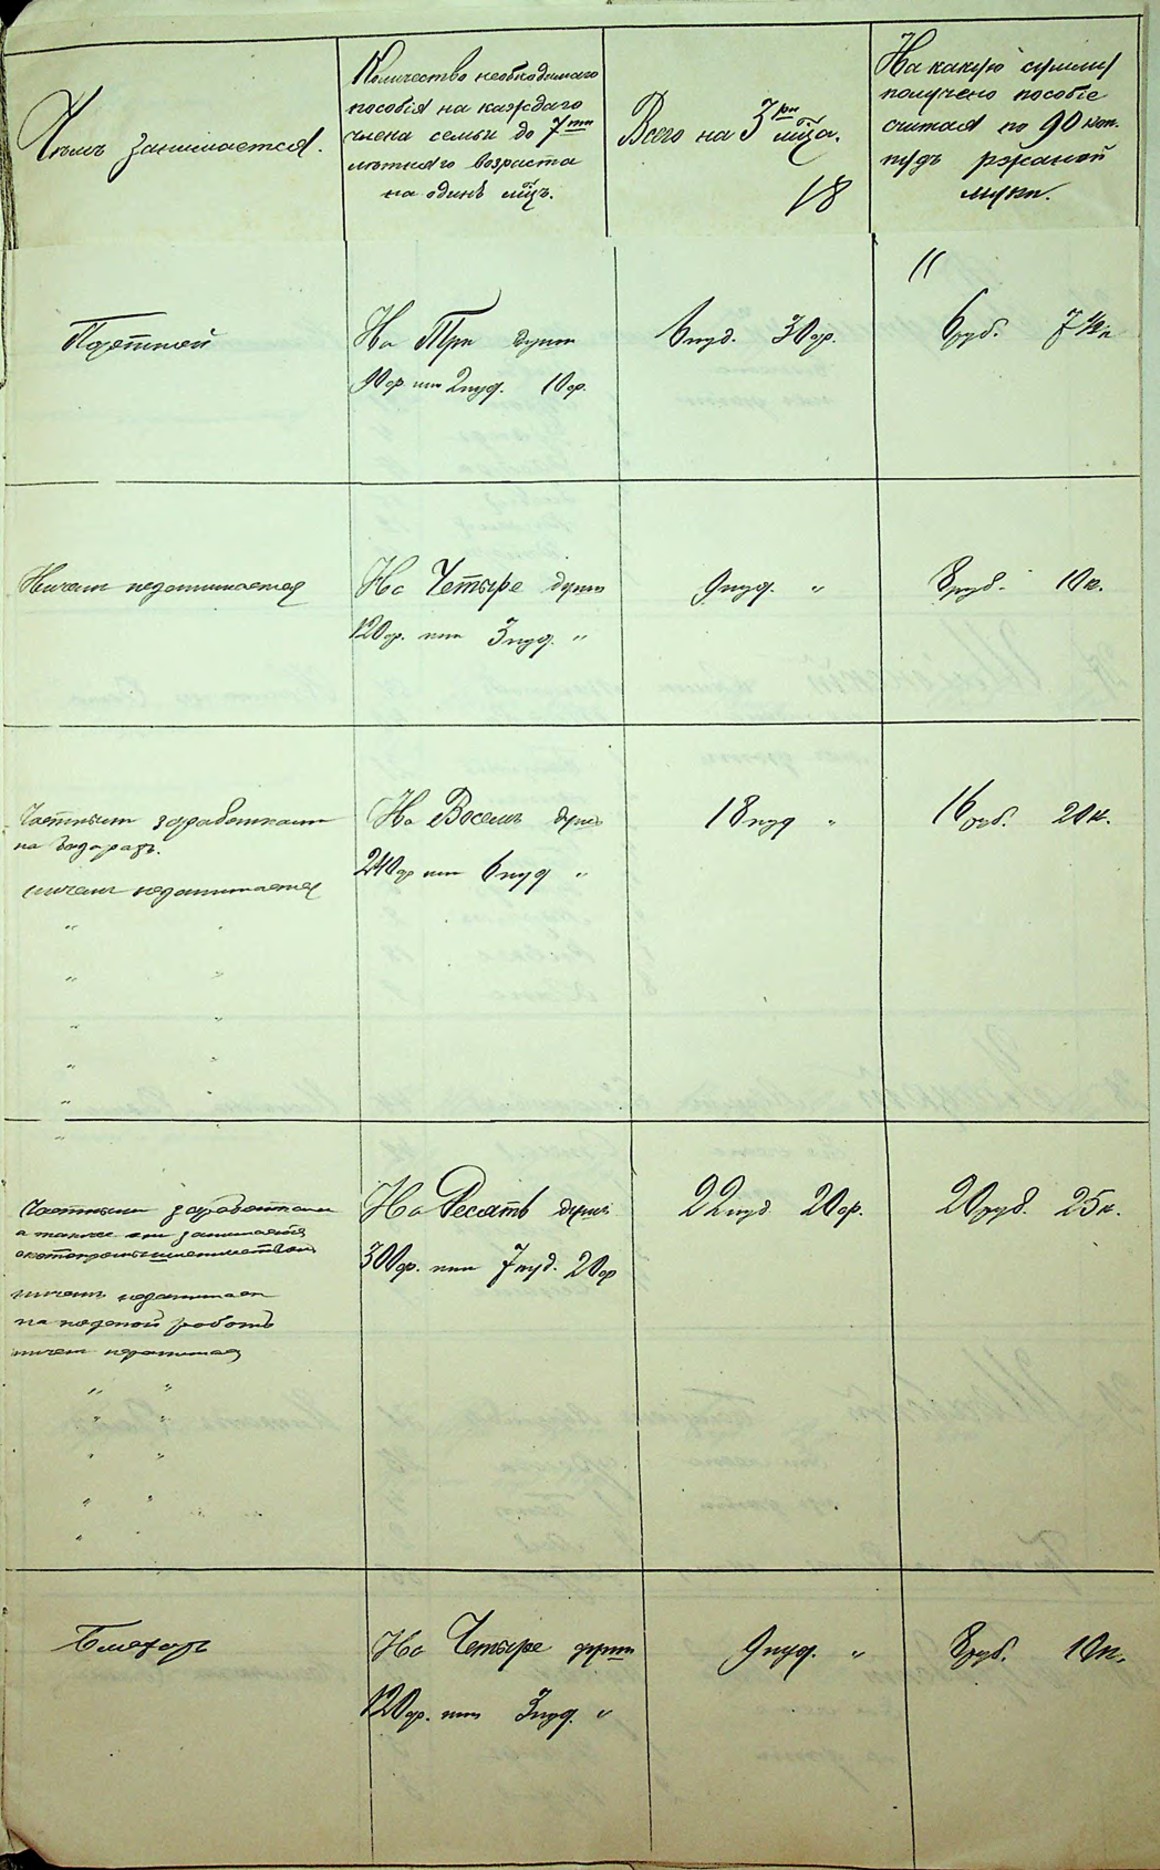 Чѣмъ занимается.
Количество необходимаго
пособія на каждаго
члена семьи до 7ми
лѣтняго возраста
на одинъ мѣц.
Всего на 3ри мѣца.
18
На какую сумму
получено пособіе
считая по 90 коп.
пудъ ржаной
муки.
11
Портной
На Три души
90ф. или 2пуд. 10ф.
6пуд. 30ф.
6руб. 7½к
Ничем незанимается
На Четыре души
120ф. или 3пуд. "
9пуд. "
8руб. 10к.
Частным заработкам
на
ничем незанимается
" "
" "
" "
" "
"
"
На Восемь душ
240ф или 6пуд "
18пуд "
16руб. 20к.
Частными заработками
а также занимается
ничем незанимает
на работѣ
ничем незанимает
" "
" "
" "
" "
"
На Десять душ
300ф. или 7пуд. 20ф
22пуд 20ф.
20руб. 25к.
На Четыре души
120ф. или 3пуд. "
9пуд. "
8руб. 10к.